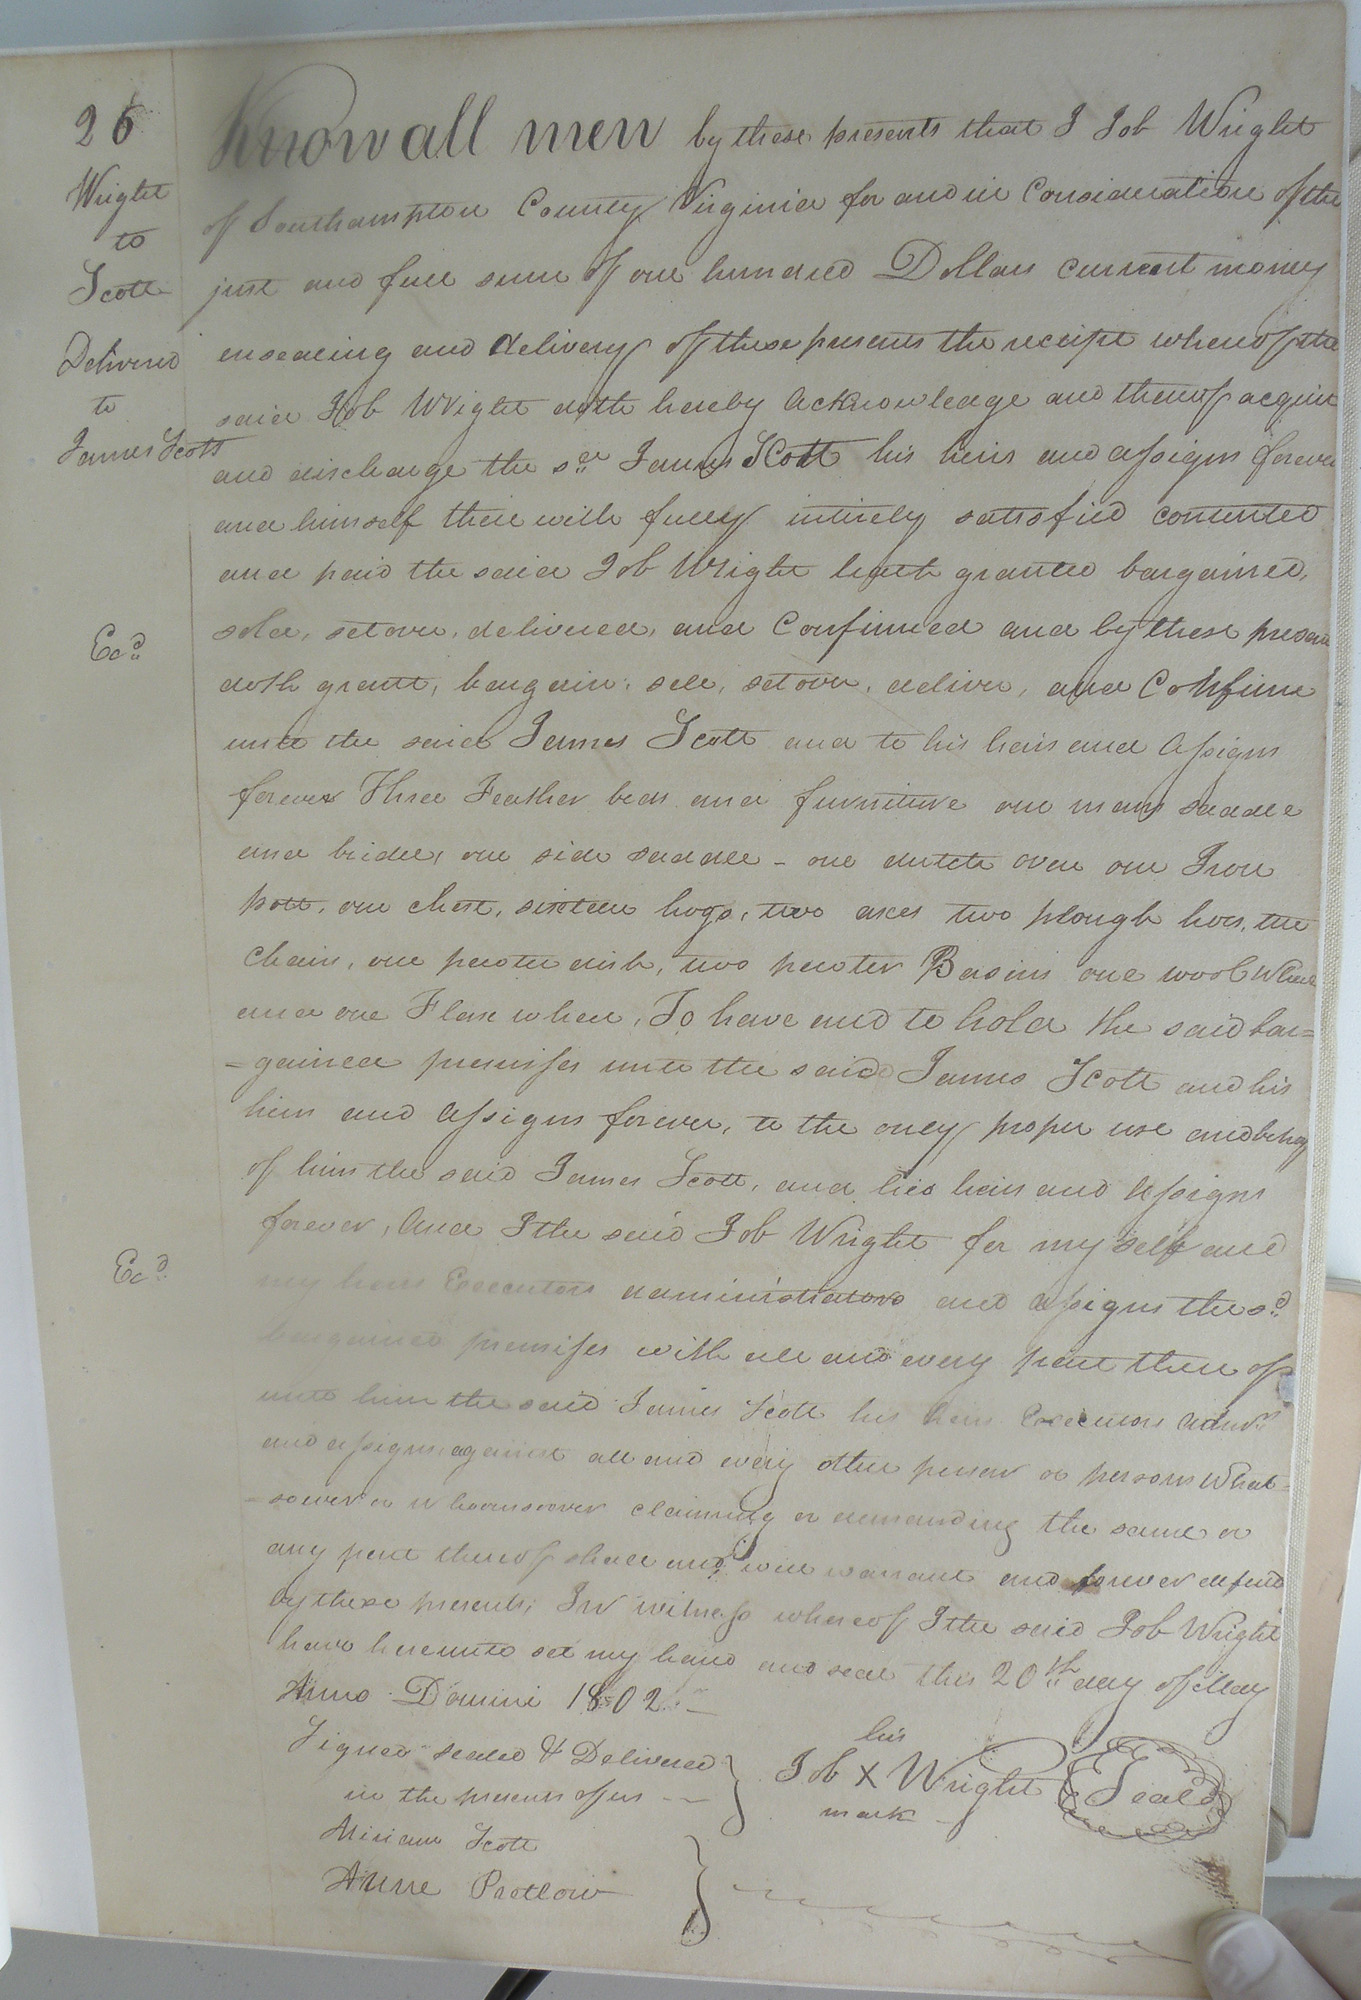 26
Wright
to
Scott
Delivered
to
James Scott
Ex.d
Ex.d
Know all men by these presents that I Job Wright
of Southampton County Virginia for and in Consideration of the
just and full sum of one hundred Dollars current money
ensealing and delivery of these presents the receipt whereof the
said Job Wright doth hereby Acknowledge and thereof acquit
and discharge the sd James Scott his heirs and assigns forever
and himself therewith fully intirely satisfied contented
and paid the said Job Wright hath granted bargained,
sold, setover, delivered, and Confirmed and by these presents
doth grant, bargain, sell, setover, deliver, and Confirm
unto the said James Scott and to his heirs and Assigns
forever Three Feather beds and furniture one mans saddle
and bridle, one side saddle - one dutch oven one Iron
pott, one chest, sixteen hogs, two axes two plough hoes,
Chairs, one pewter dish, two pewter Basins one wool Wheel
and one Flax wheel, To have and to hold the said bar=
=gained premises unto the said James Scott and his
heirs and Assigns forever, to the only proper use and behoof
of him the said James Scott, and his heirs and Assigns
forever, And I the said Job Wright for my self and
my heirs Executors administrators and assigns the sd
bargained premises with all and every part there of
unto him the said James Scott his heirs Executors Admrs
and assigns against all and every other person or persons What-
-soever or Whomsoever claiming or demanding the same or
any part thereof shall and will warrant and forever defend
by these presents, In witness whereof I the said Job Wright
have hereunto set my hand and seal this 20th day of May
Anno Domini 1802
Signed sealed & Delivered
in the presents of us
Miriam Scott
Anne Portlow
his
Job X Wright Seal
mark